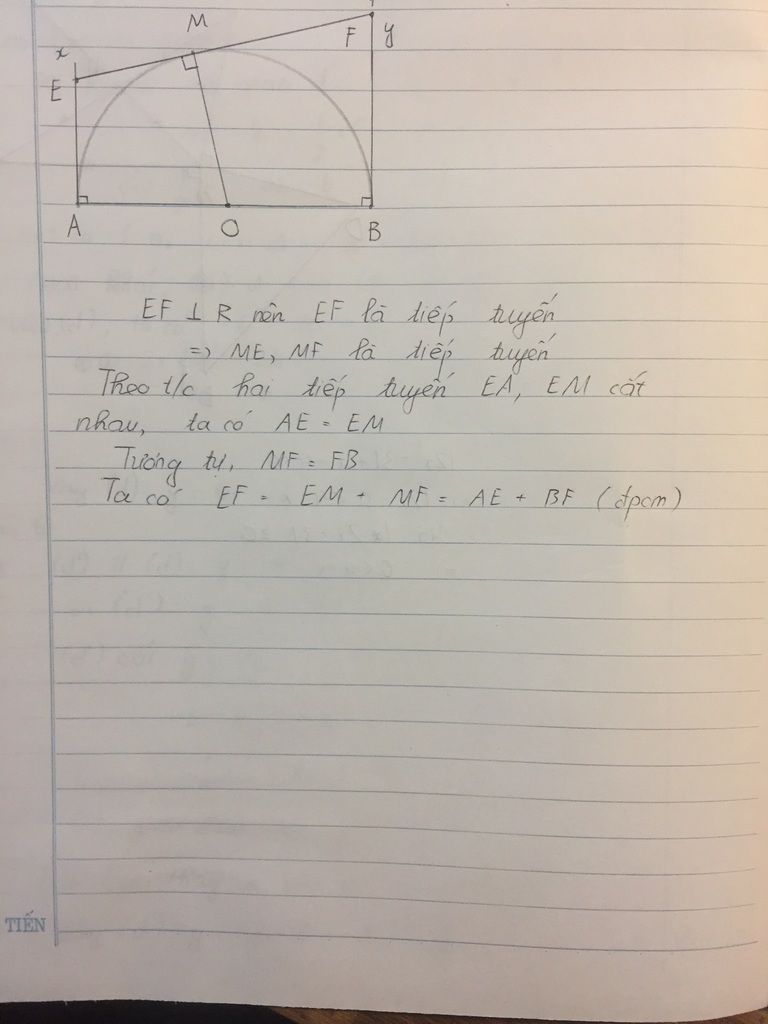 M
F y
x
E
A O B
EF ⊥ R nên EF là tiếp tuyến
=> ME, MF là tiếp tuyến
Theo t/c hai tiếp tuyến EA, EM cắt
nhau, ta có AE = EM
Tương tự, MF = FB
Ta có EF = EM + MF = AE + BF (đpcm)
TIẾN